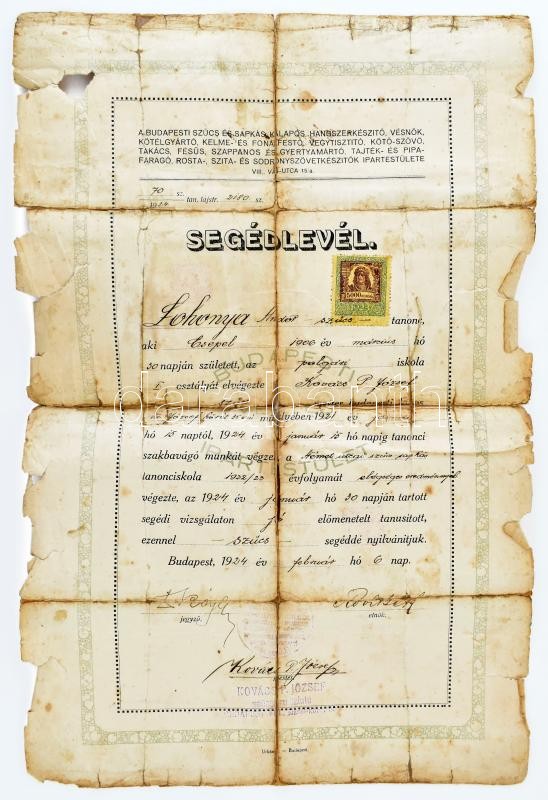 A BUDAPESTI SZŰCS ÉS SAPKÁS, KALAPOS, HANGSZERKÉSZITŐ, VÉSNÖK,
KÖTÉLGYÁRTÓ, KELME- ÉS FONALFESTŐ, VEGYTISZTITÓ, KÖTŐ-SZÖVŐ,
TAKÁCS, FÉSŰS, SZAPPANOS ÉS GYERTYAMÁRTÓ, TAJTÉK- ÉS PIPA-
FARAGÓ, ROSTA-, SZITA- ÉS SODRONYSZÖVETKÉSZITŐK IPARTESTÜLETE
VIII., VAS-UTCA 15/a.
70 sz.
1924 tan. lajstr. 2180 sz.
SEGÉDLEVÉL.
5000
1923
Lohonya Nándor szűcs tanonc,
aki Csepel 1906 év március hó
30 napján született, az polgári iskola
I osztályát elvégezte Kovács P. József
szűcs
műhelyében 1921 év
hó 15 naptól, 1924 év január 15 hó napig tanonci
szakbavágó munkát végzett, a Német utcai szűcs sapkás
tanonciskola 1922/23 évfolyamát elégséges eredménnyel
végezte, az 1924 év január hó 30 napján tartott
segédi vizsgálaton jó előmenetelt tanusított,
ezennel szűcs segéddé nyilvánitjuk.
Budapest, 1924 év február hó 6 nap.
jegyző.
elnök.
Kovács P. József
KOVÁCS P. JÓZSEF
Budapest.
darabanth